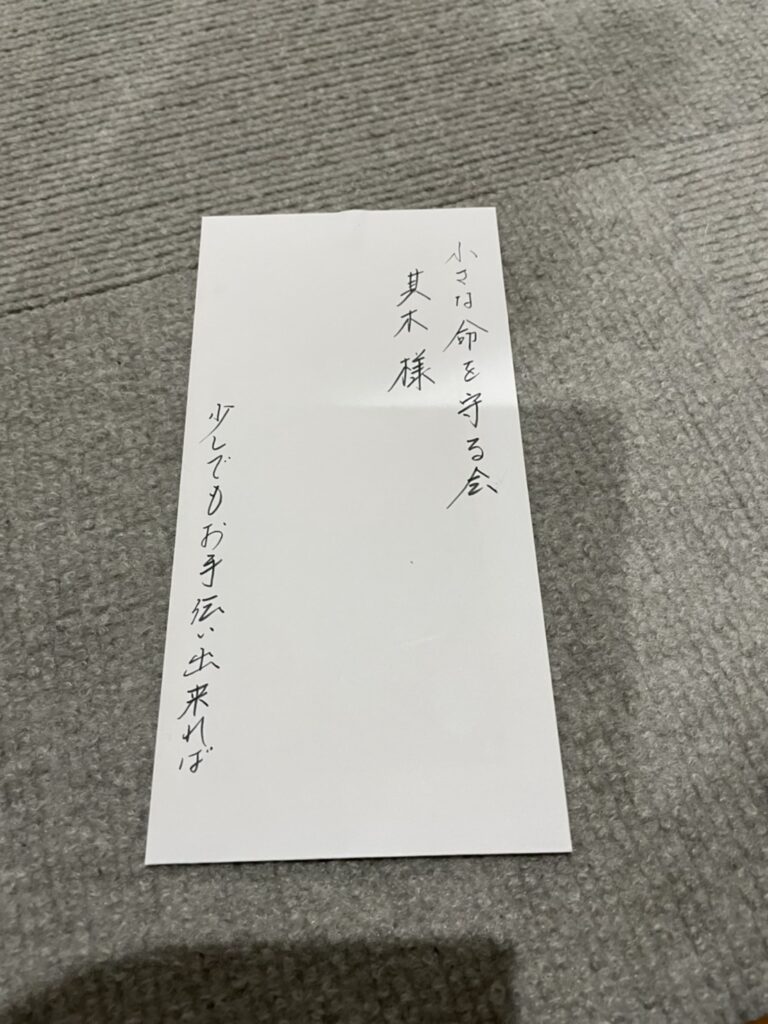 小さな命を守る会
其木 様
少しでもお手伝い出来れば